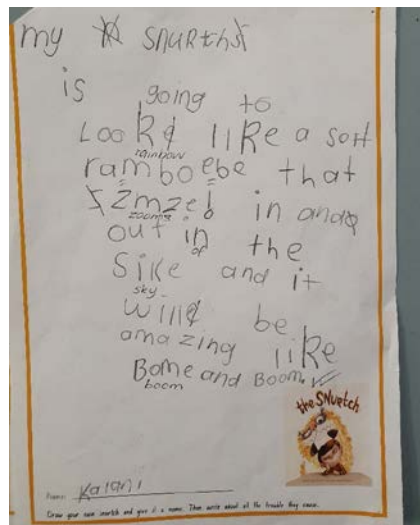 my snurths
is going to
Look like a sort
rainbow
ramboebe that
zmzeb in and
zooms
out in the
of
Sike and it
sky
will be
amazing like
Bome and Boom.
boom
the SNURTCH
Name: Kalani
Draw your own snurtch and give it a name. Then write about all the trouble they cause.